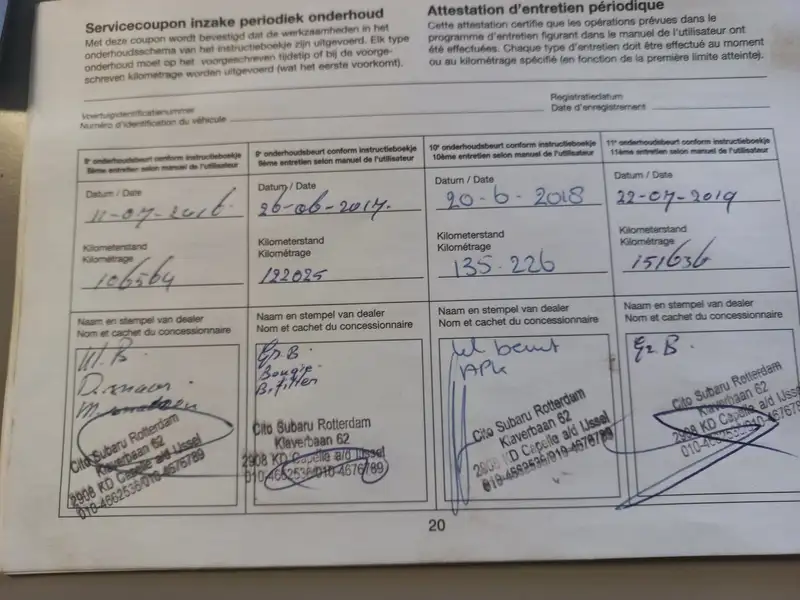 Servicecoupon inzake periodiek onderhoud
Met deze coupon wordt bevestigd dat de werkzaamheden in het
onderhoudsschema van het instructieboekje zijn uitgevoerd. Elk type
onderhoud moet op het voorgeschreven tijdstip of bij de voorge-
schreven kilometrage worden uitgevoerd (wat het eerste voorkomt).
Attestation d'entretien périodique
Cette attestation certifie que les opérations prévues dans le
programme d'entretien figurant dans le manuel de l'utilisateur ont
été effectuées. Chaque type d'entretien doit être effectué au moment
ou au kilométrage spécifié (en fonction de la première limite atteinte).
Voertuigidentificatienummer
Numéro d'identification du véhicule
Registratiedatum
Date d'enregistrement
8e onderhoudsbeurt conform instructieboekje
8ème entretien selon manuel de l'utilisateur
Datum / Date
11-07-2016.
Kilometerstand
Kilométrage
106564
Naam en stempel van dealer
Nom et cachet du concessionnaire
Cito Subaru Rotterdam
Klaverbaan 62
2908 KD Capelle a/d IJssel
010-4662536/010-4676789
9e onderhoudsbeurt conform instructieboekje
9ème entretien selon manuel de l'utilisateur
Datum / Date
26-06-2017.
Kilometerstand
Kilométrage
122025
Naam en stempel van dealer
Nom et cachet du concessionnaire
Gr.B.
Bougie
B.filter
Cito Subaru Rotterdam
Klaverbaan 62
2908 KD Capelle a/d IJssel
010-4662536/010-4676789
10e onderhoudsbeurt conform instructieboekje
10ème entretien selon manuel de l'utilisateur
Datum / Date
20-6-2018
Kilometerstand
Kilométrage
135.226
Naam en stempel van dealer
Nom et cachet du concessionnaire
beurt
APK
Cito Subaru Rotterdam
Klaverbaan 62
2908 KD Capelle a/d IJssel
010-4662536/010-4676789
11e onderhoudsbeurt conform instructieboekje
11ème entretien selon manuel de l'utilisateur
Datum / Date
22-07-2019
Kilometerstand
Kilométrage
151636
Naam en stempel van dealer
Nom et cachet du concessionnaire
Gr.B.
Cito Subaru Rotterdam
Klaverbaan 62
2908 KD Capelle a/d IJssel
20